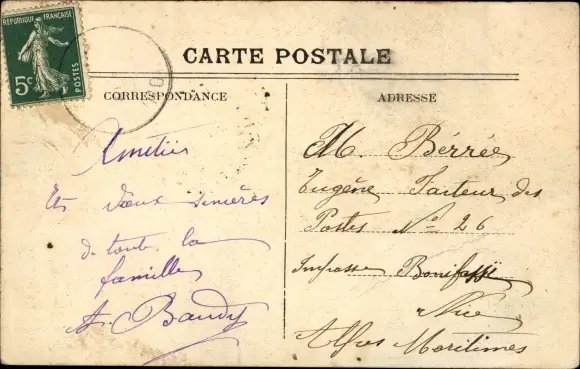 RÉPUBLIQUE FRANÇAISE
5c
POSTES
CARTE POSTALE
CORRESPONDANCE
ADRESSE
Amitiés
Et Vœux sincères
de toute la
famille
A. Baudy
M. Bérrée
Eugène Facteur des
Postes No 26
Impasse Boniface
Nice
Alpes Maritimes